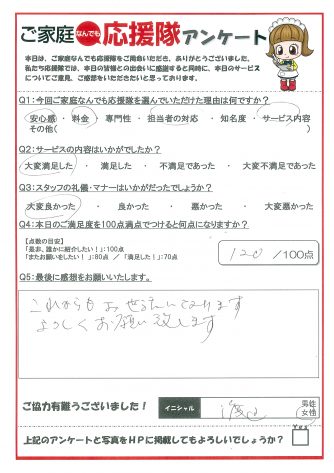 ご家庭なんでも応援隊アンケート
本日は、ご家庭なんでも応援隊をご用命いただき、ありがとうございました。
私たち応援隊では、本日の皆様との出会いに感謝すると同時に、本日のサービス
についてご意見、ご感想をいただきたいと思っております。
Q1:今回ご家庭なんでも応援隊を選んでいただけた理由は何ですか？
安心感・料金・専門性・担当者の対応・知名度・サービス内容
その他( )
Q2:サービスの内容はいかがでしたか？
大変満足した・満足した・不満足であった・大変不満足であった
Q3:スタッフの礼儀・マナーはいかがだったでしょうか？
大変良かった・良かった・悪かった・大変悪かった
Q4:本日のご満足度を100点満点でつけると何点になりますか？
【点数の目安】
「是非、誰かに紹介したい！」:100点
「またお願いをしたい！」:80点／「満足した！」:70点
120/100点
Q5:最後に感想をお願いいたします。
これからもお世話になります
よろしくお願い致します
ご協力有難うございました！
イニシャル
男性
女性
上記のアンケートと写真をHPに掲載してもよろしいでしょうか？
Yes